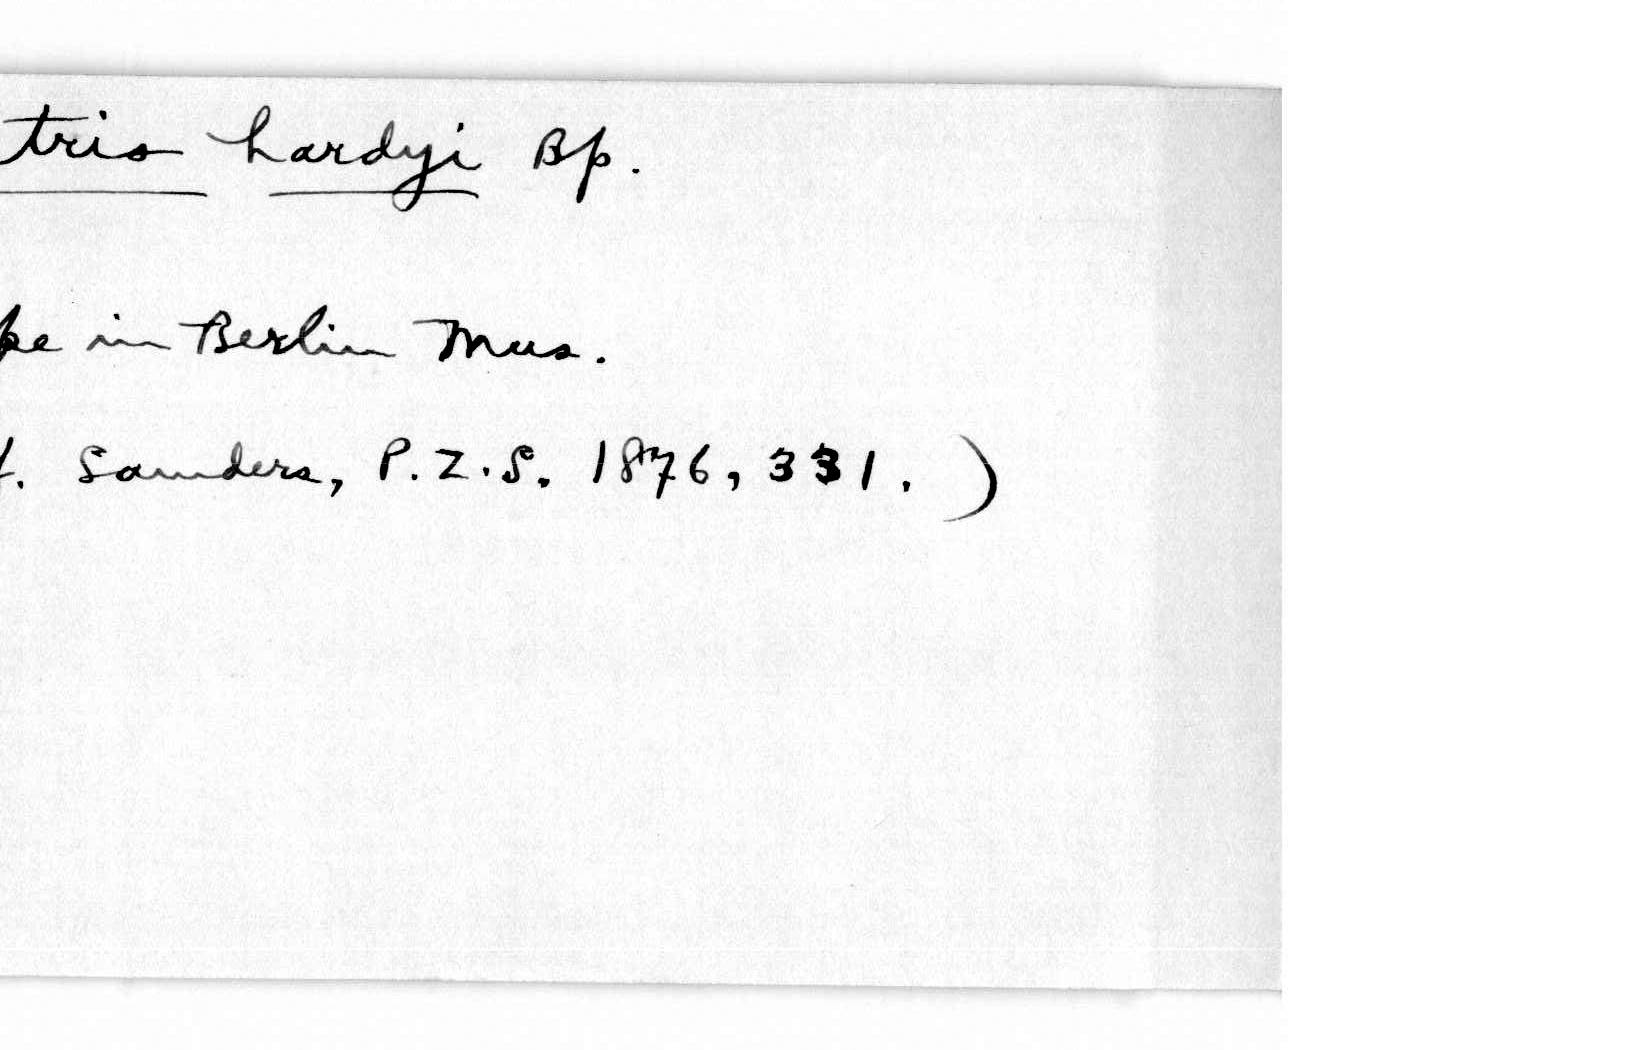 tris hardyi Bp.
pe in Berlin Mus.
. Saunders, P.Z.S. 1876, 331.)